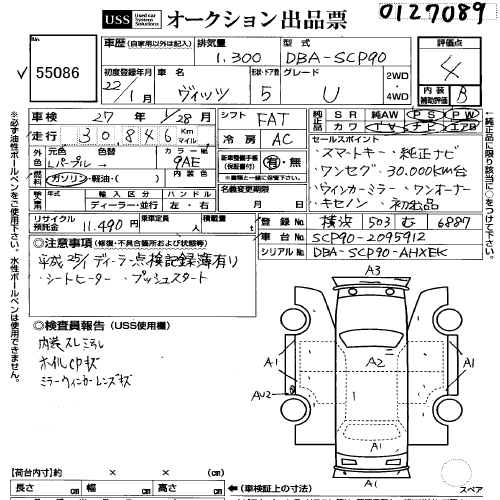 0127089
USS Used car System Solutions オークション出品票
55086
車歴 (自家用以外は記入) 排気量 1,300 型式 DBA-SCP90
初度登録年月 22/1月 車名 ヴィッツ 形状・ドア数 5 グレード U 2WD・4WD
評価点 4
内装 補助評価 B
車検 27年 1/28月 シフト FAT
走行 30,846 Km マイル 冷房 AC
純正品 SR 純AW PS PW
カワ TV ナビ エアB
外色 元色 Lパープル 色替 カラーNo. 9AE 内装色
燃料 ガソリン・軽油・( )
新車整備手帳(保証書付) 有・無
名義変更期限 月 日
乗車定員 人 積載量 t
輸入区分 ハンドル
ディーラー・並行 左・右
リサイクル預託金 11,490円
セールスポイント
・スマートキー・純正ナビ
・ワンセグ・30.000km台
・ウィンカーミラー・ワンオーナー
・キセノン・初出品
登録 横浜 503 む 6887
車台 SCP90-2095912
シリアル DBA-SCP90-AHXEK
◎注意事項 (修復・不具合箇所および状態等)
平成25/1 ディーラー点検記録簿有り
・シートヒーター・プッシュスタート
◎検査員報告 (USS使用欄)
内装スレ ミラレ
ホイルCPキズ
ミラーウィンカーレンズキズ
A3
A1 A2 A1
AU2 1
A1
A1
スペア
【荷台内寸】約 × × cm
長さ cm 幅 cm 高さ cm
(車検証上の寸法)
※必ず油性ボールペンをご使用下さい。水性ボールペンは使用できません。